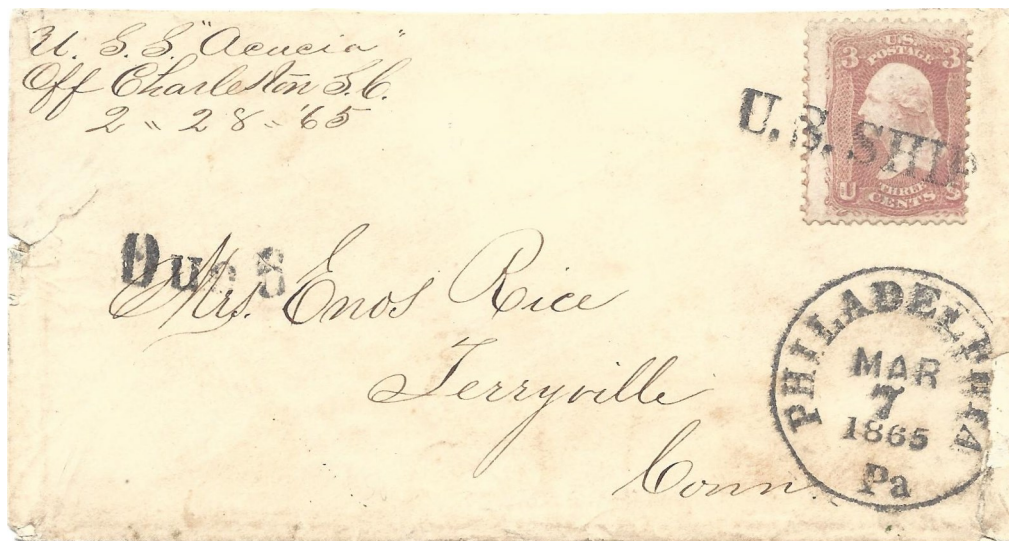 U. S. S. "Acacia"
Off Charleston S.C.
2 " 28 " '65
U.S.
POSTAGE
3 3
U.S. SHIP
THREE
CENTS
U S
Due 8
Mrs. Enos Rice
Terryville
Conn.
PHILADELPHIA
MAR
7
1865
Pa